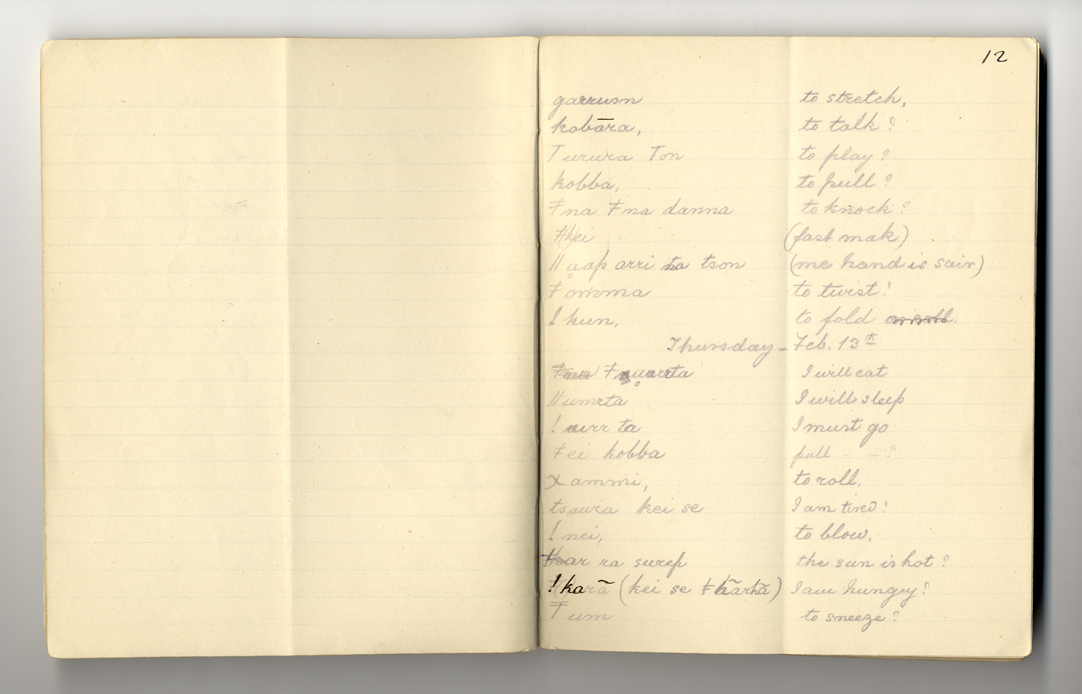 12
garrusn to stretch,
kobāra, to talk?
Turura Ton to play?
kobba, to pull?
ǂna ǂna danna to knock?
(fast mak)
ǁuap arri ta tson (me hand is sair)
ǂomma to twist?
! hun, to fold
Thursday - Feb. 13th
I will eat
ǁumrta I will sleep
! urr ta I must go
ǂei kobba pull - - ?
Xammi, to roll,
tsoura kei se I am tired?
! nei, to blow,
ra surep the sun is hot?
!karā (kei se I am hungry?
ǂum to sneeze?